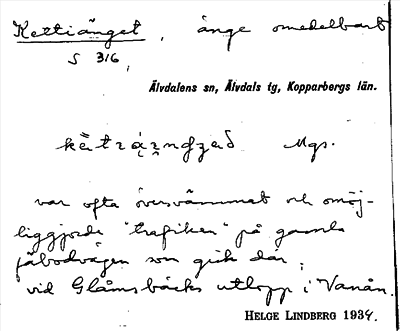 Kettiänget, änge omedelbart
S 316,
Älvdalens sn, Älvdals tg, Kopparbergs län.
Mgs.
var ofta översvämmat och omöj-
liggjorde "trafiken" på gamla
fäbodvägen som gick där,
vid Glåmsbäcks utlopp i Vanån.
HELGE LINDBERG 1934.